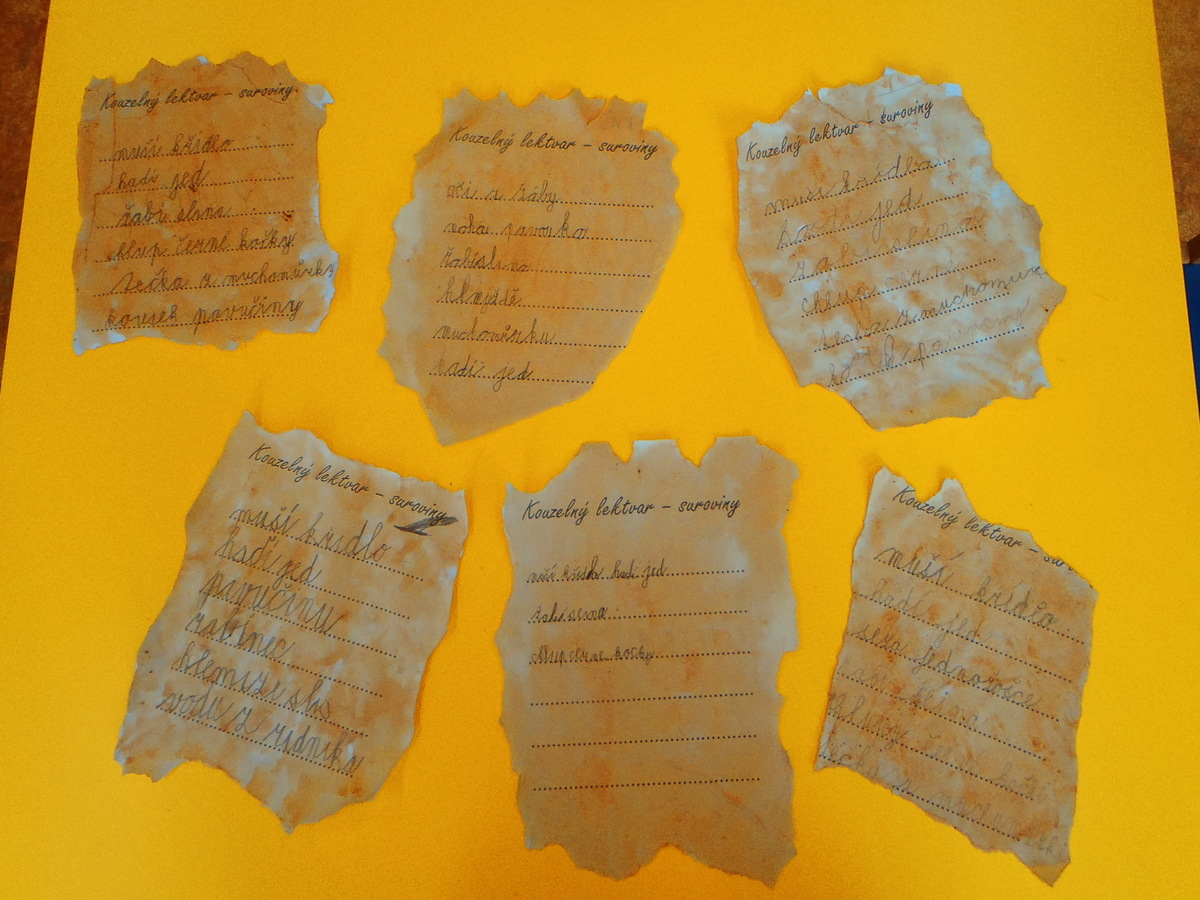 Kouzelný lektvar - suroviny
muší křídlo
hadí jed
žabí slina
chlup černé kočky
tečka z muchomůrky
kousek pavučiny
Kouzelný lektvar - suroviny
oči z žáby
noha pavouka
žabislina
hlmýždě
muchomůrku
hadí jed
Kouzelný lektvar - suroviny
muší křídlo
hadí jed
žabí slina
chlup
tečka z muchomůrk
Kouzelný lektvar - suroviny
muší křídlo
hadí jed
pavučinu
vodu z
Kouzelný lektvar - suroviny
muší křídlo hadí jed
chlup kočky
Kouzelný lektvar - sur
muší křídlo
hadí jed
jednorožce
slina
tečka z